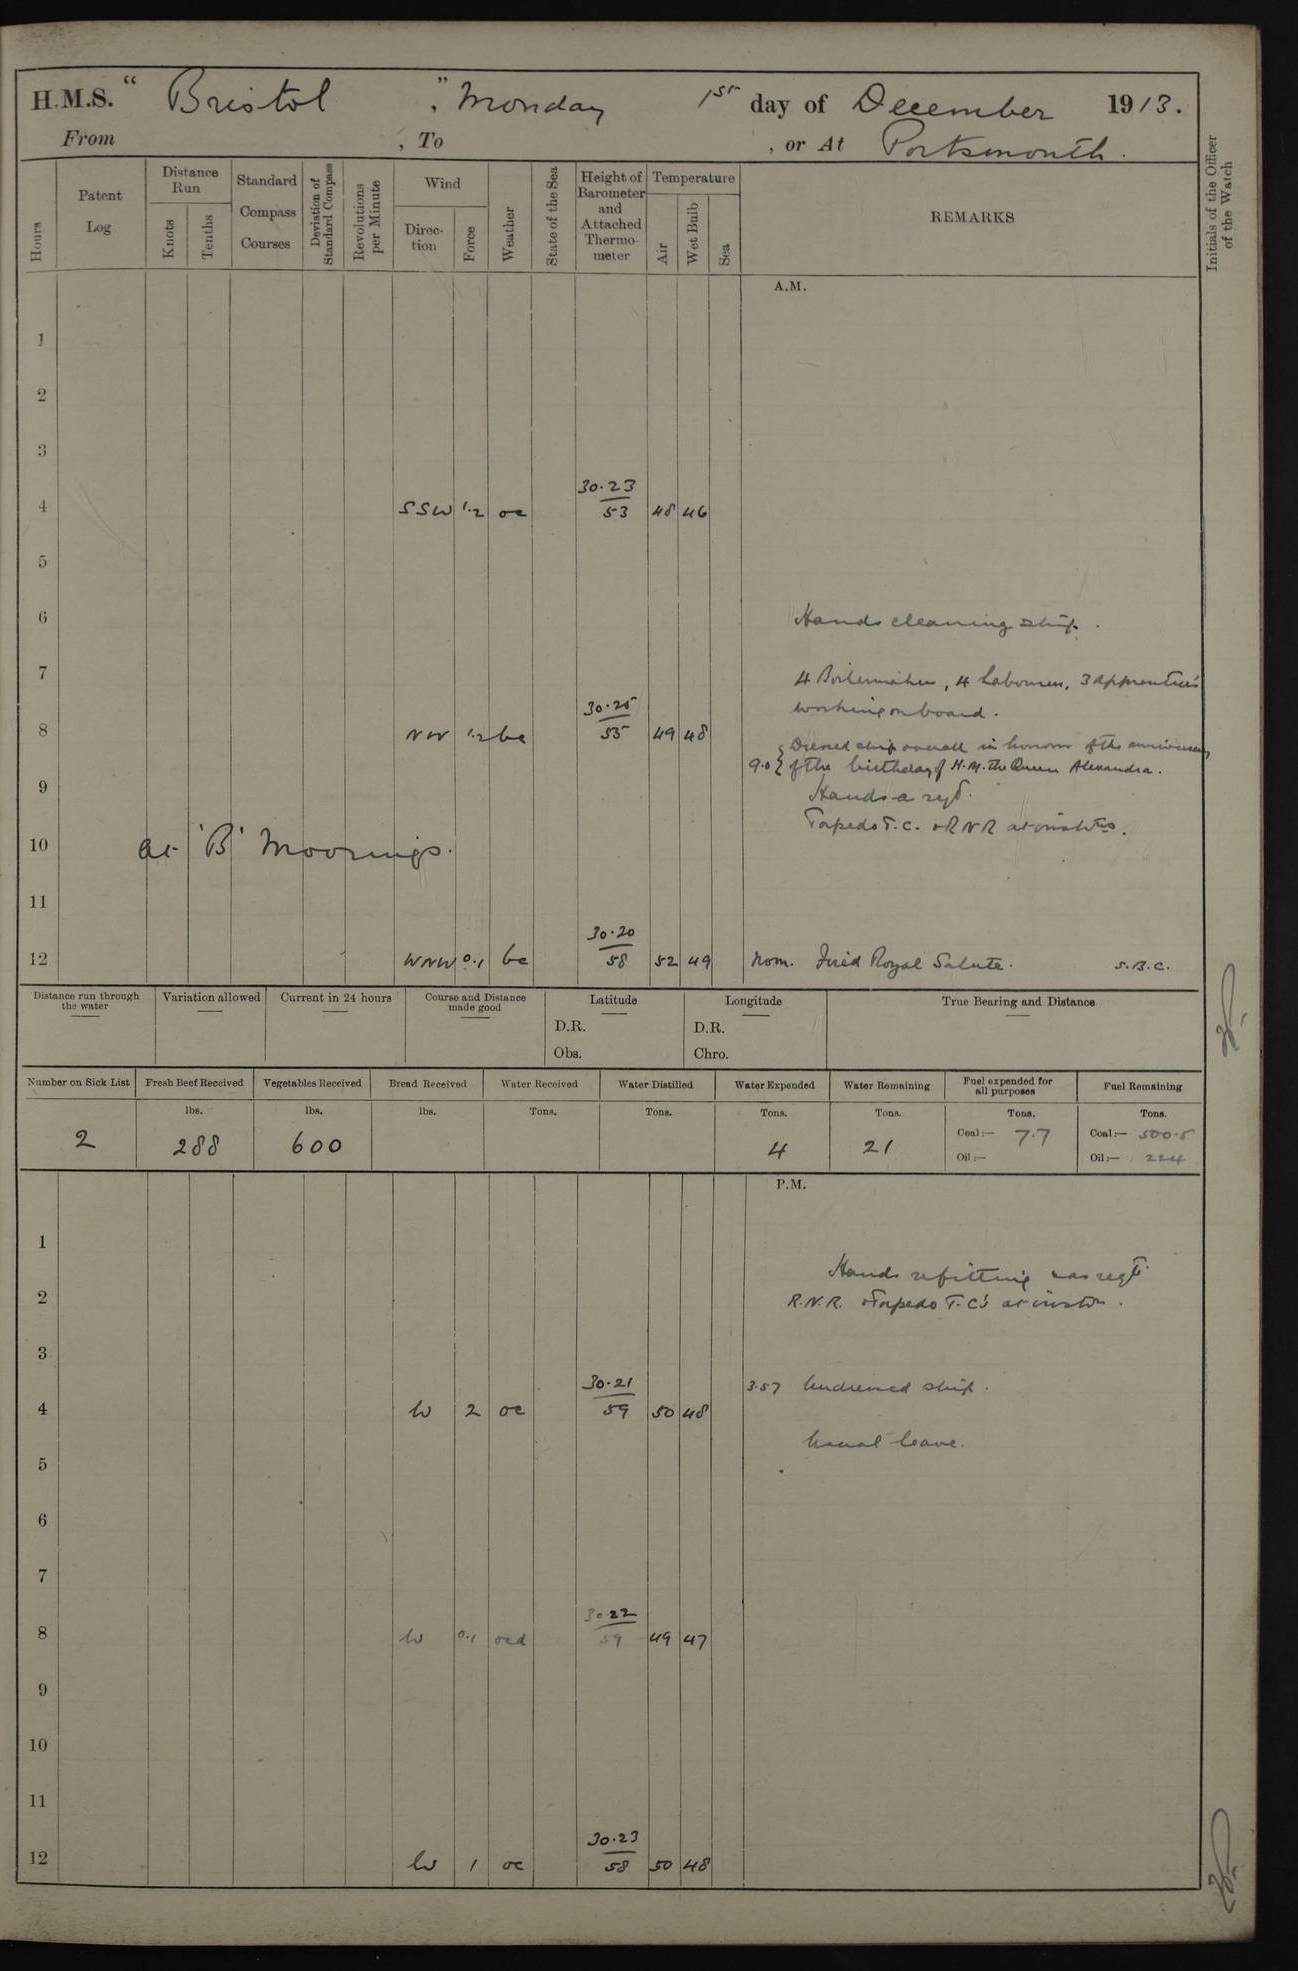 H.M.S. “ Bristol ”, Monday 1st day of December 1913.
From , To , or At Portsmouth.
Hours
Patent Log
Distance Run
Knots
Tenths
Standard Compass Courses
Deviation of Standard Compass
Revolutions per Minute
Wind
Direction
Force
Weather
State of the Sea
Height of Barometer and Attached Thermometer
Temperature
Air
Wet Bulb
Sea
REMARKS
Initials of the Officer of the Watch
A.M.
1
2
3
4 SSW 1.2 oc 30.23 / 53 48 46
5
6 Hands cleaning ship.
7 4 Boilermakers, 4 Labourers, 3 apprentices
working on board.
8 NW 1.2 bc 30.25 / 55 49 48
Dressed ship overall in honour of the anniversary
9.0 { of the birthday of H.M. the Queen Alexandra.
9 Hands a reqd.
Torpedo T.C. & RNR at instn.
10 at 'B' Moorings.
11
12 WNW 0.1 bc 30.20 / 58 52 49 Noon. Fired Royal Salute. S.B.C.
Distance run through the water
Variation allowed
Current in 24 hours
Course and Distance made good
Latitude
D.R.
Obs.
Longitude
D.R.
Chro.
True Bearing and Distance
Number on Sick List
Fresh Beef Received
Vegetables Received
Bread Received
Water Received
Water Distilled
Water Expended
Water Remaining
Fuel expended for all purposes
Fuel Remaining
lbs. lbs. lbs. Tons. Tons. Tons. Tons. Tons. Tons.
2 288 600 4 21 Coal:— 7.7 Coal:— 500.5
Oil:— Oil:— 224
P.M.
1
Hands refitting & as reqd.
2 R.N.R. & Torpedo T.C's at instn.
3
3.57 Undressed ship.
4 W 2 oc 30.21 / 59 50 48
Usual leave.
5
6
7
8 W 0.1 ocd 30.22 / 59 49 47
9
10
11
12 W 1 oc 30.23 / 58 50 48